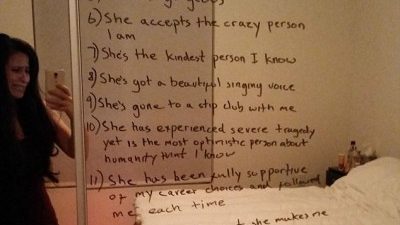 6) She accepts the crazy person
I am
7) She's the kindest person I know
8) She's got a beautiful singing voice
9) She's gone to a strip club with me
10) She has experienced severe tragedy
yet is the most optimistic person about
humanity I know
11) She has been fully supportive
of my career choices and followed
me each time
she makes me